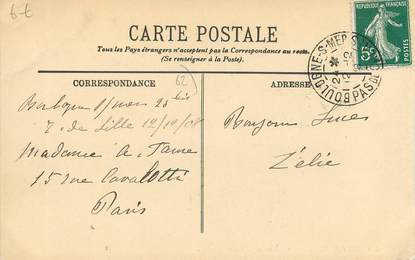 6-6
CARTE POSTALE
Tous les Pays étrangers n'acceptent pas la Correspondance au recto.
(Se renseigner à la Poste)
RÉPUBLIQUE FRANÇAISE
5c
POSTES
BOULOGNE-S-MER
PAS DE
CORRESPONDANCE
62
ADRESSE
Boulogne s/mer 25 bis
r. de Lille 12/12/08
Madame A. Favre
15 rue Cavalotti
Paris
Bonjour
Zélie